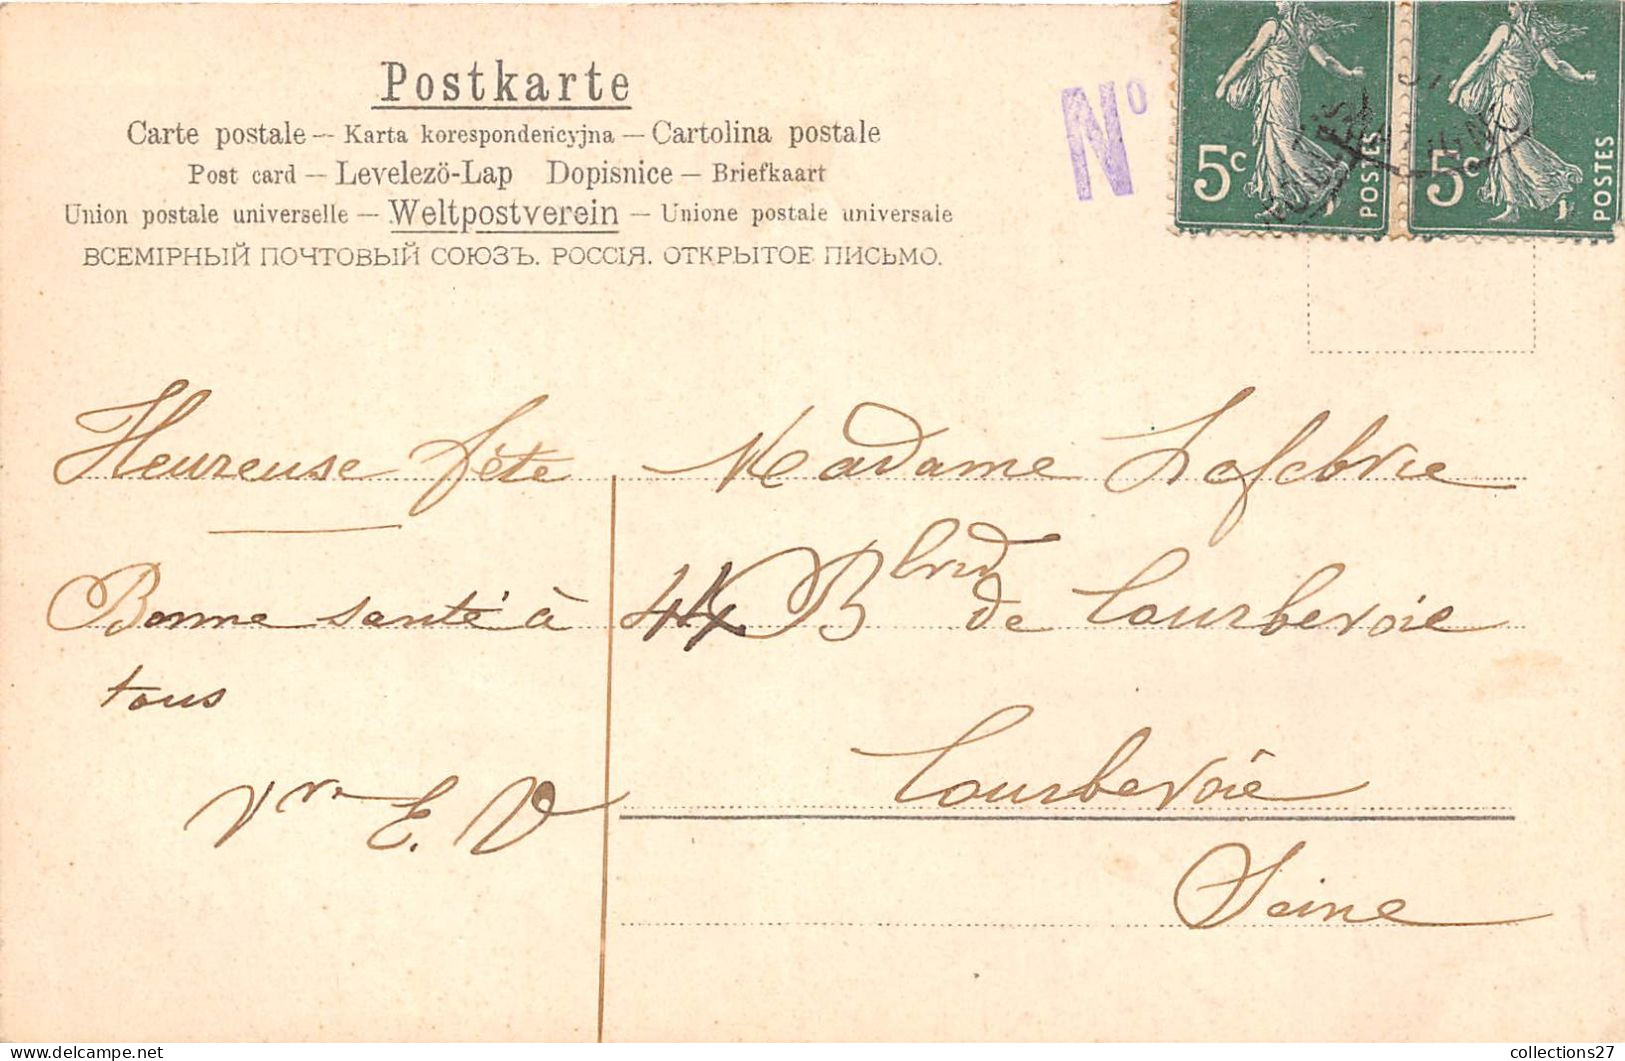 Postkarte
Carte postale — Karta korespondencyjna — Cartolina postale
Post card — Levelezö-Lap Dopisnice — Briefkaart
Union postale universelle — Weltpostverein — Unione postale universale
ВСЕМІРНЫЙ ПОЧТОВЫЙ СОЮЗЪ. РОССІЯ. ОТКРЫТОЕ ПИСЬМО.
No
5c POSTES
5c POSTES
Heureuse fête
Bonne santé à
tous
E. V
Madame Lefebvre
Blvd de Courbevoie
Courbevoie
Seine
collections27